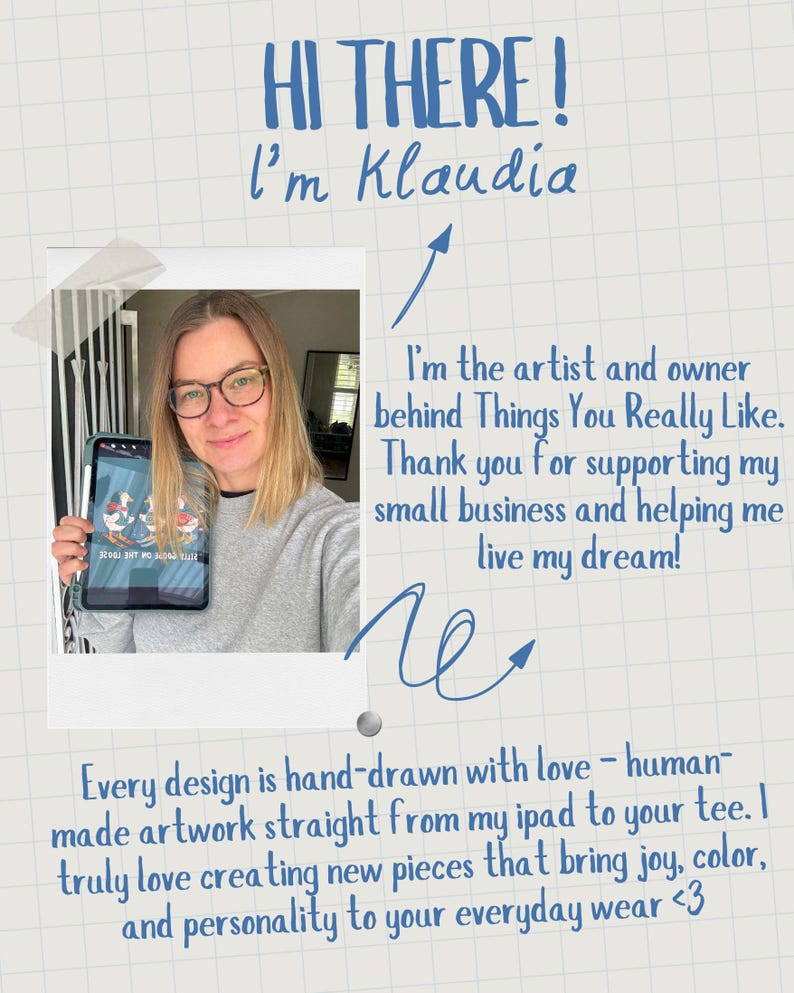 HI THERE!
I'm Klaudia
I'm the artist and owner
behind Things You Really Like.
Thank you for supporting my
small business and helping me
live my dream!
SILLY GOOSE ON THE LOOSE
Every design is hand-drawn with love – human-
made artwork straight from my ipad to your tee. I
truly love creating new pieces that bring joy, color,
and personality to your everyday wear <3